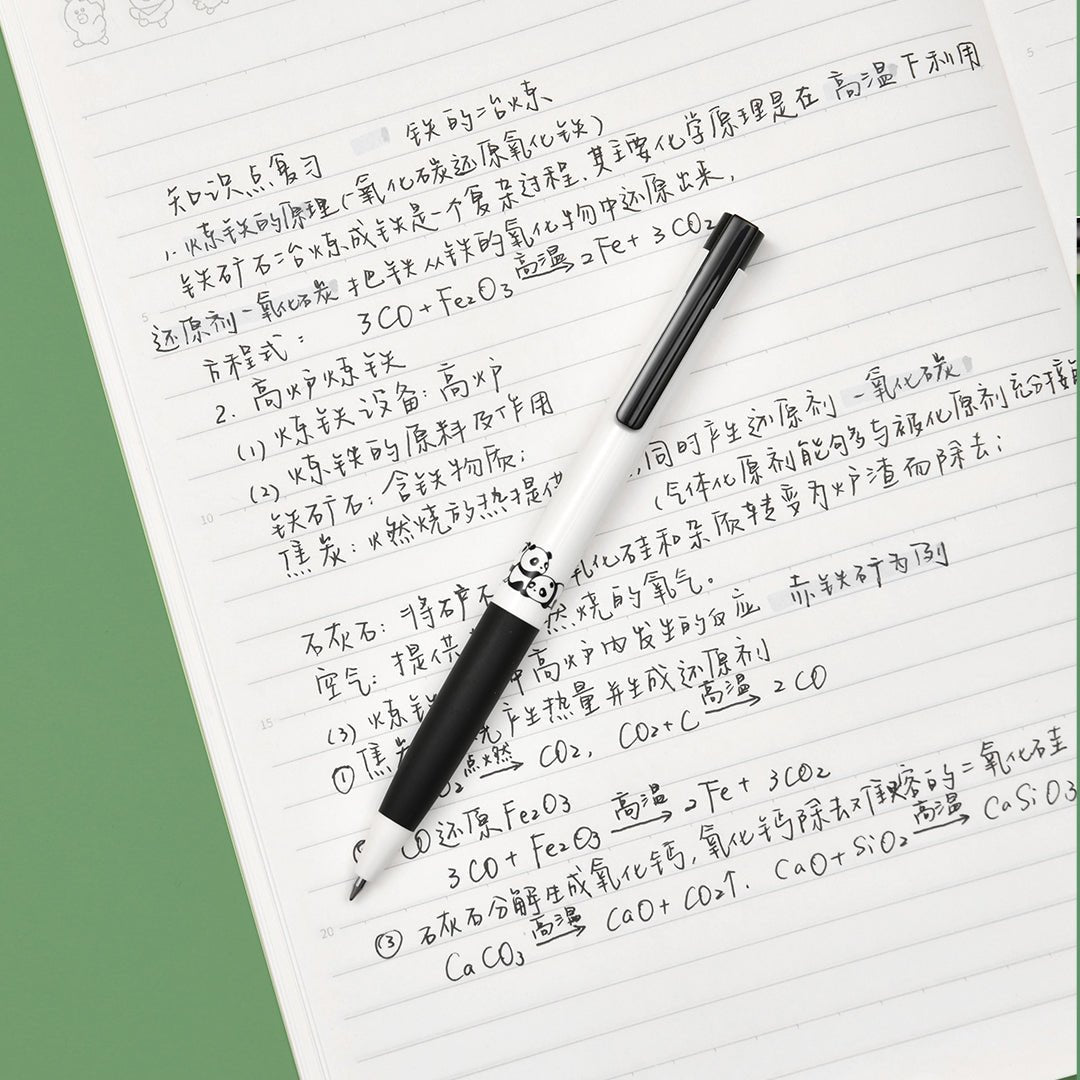 铁的冶炼
知识点复习
1. 炼铁的原理(氧化碳还原氧化铁)
铁矿石冶炼成铁是一个复杂过程.其主要化学原理是在高温下利用
还原剂一氧化碳把铁从铁的氧化物中还原出来,
方程式: 3CO+Fe2O3 高温→ 2Fe+3CO2
2. 高炉炼铁
(1) 炼铁设备: 高炉
(2) 炼铁的原料及作用
铁矿石: 含铁物质;
焦炭: 燃烧放热提供 ,同时产生还原剂一氧化碳
(气体化原剂能够多与被化原剂充分接
石灰石: 将矿石 氧化硅和杂质转变为炉渣而除去;
空气: 提供 燃烧的氧气。
(3) 炼铁 高炉内发生的反应 赤铁矿为例
① 焦 产生热量并生成还原剂
O2 点燃→ CO2, CO2+C 高温→ 2CO
CO还原Fe2O3
3CO+Fe2O3 高温→ 2Fe+3CO2
③ 石灰石分解生成氧化钙,氧化钙除去难熔的二氧化硅
CaCO3 高温→ CaO+CO2↑. CaO+SiO2 高温→ CaSiO3
5
10
15
20
5